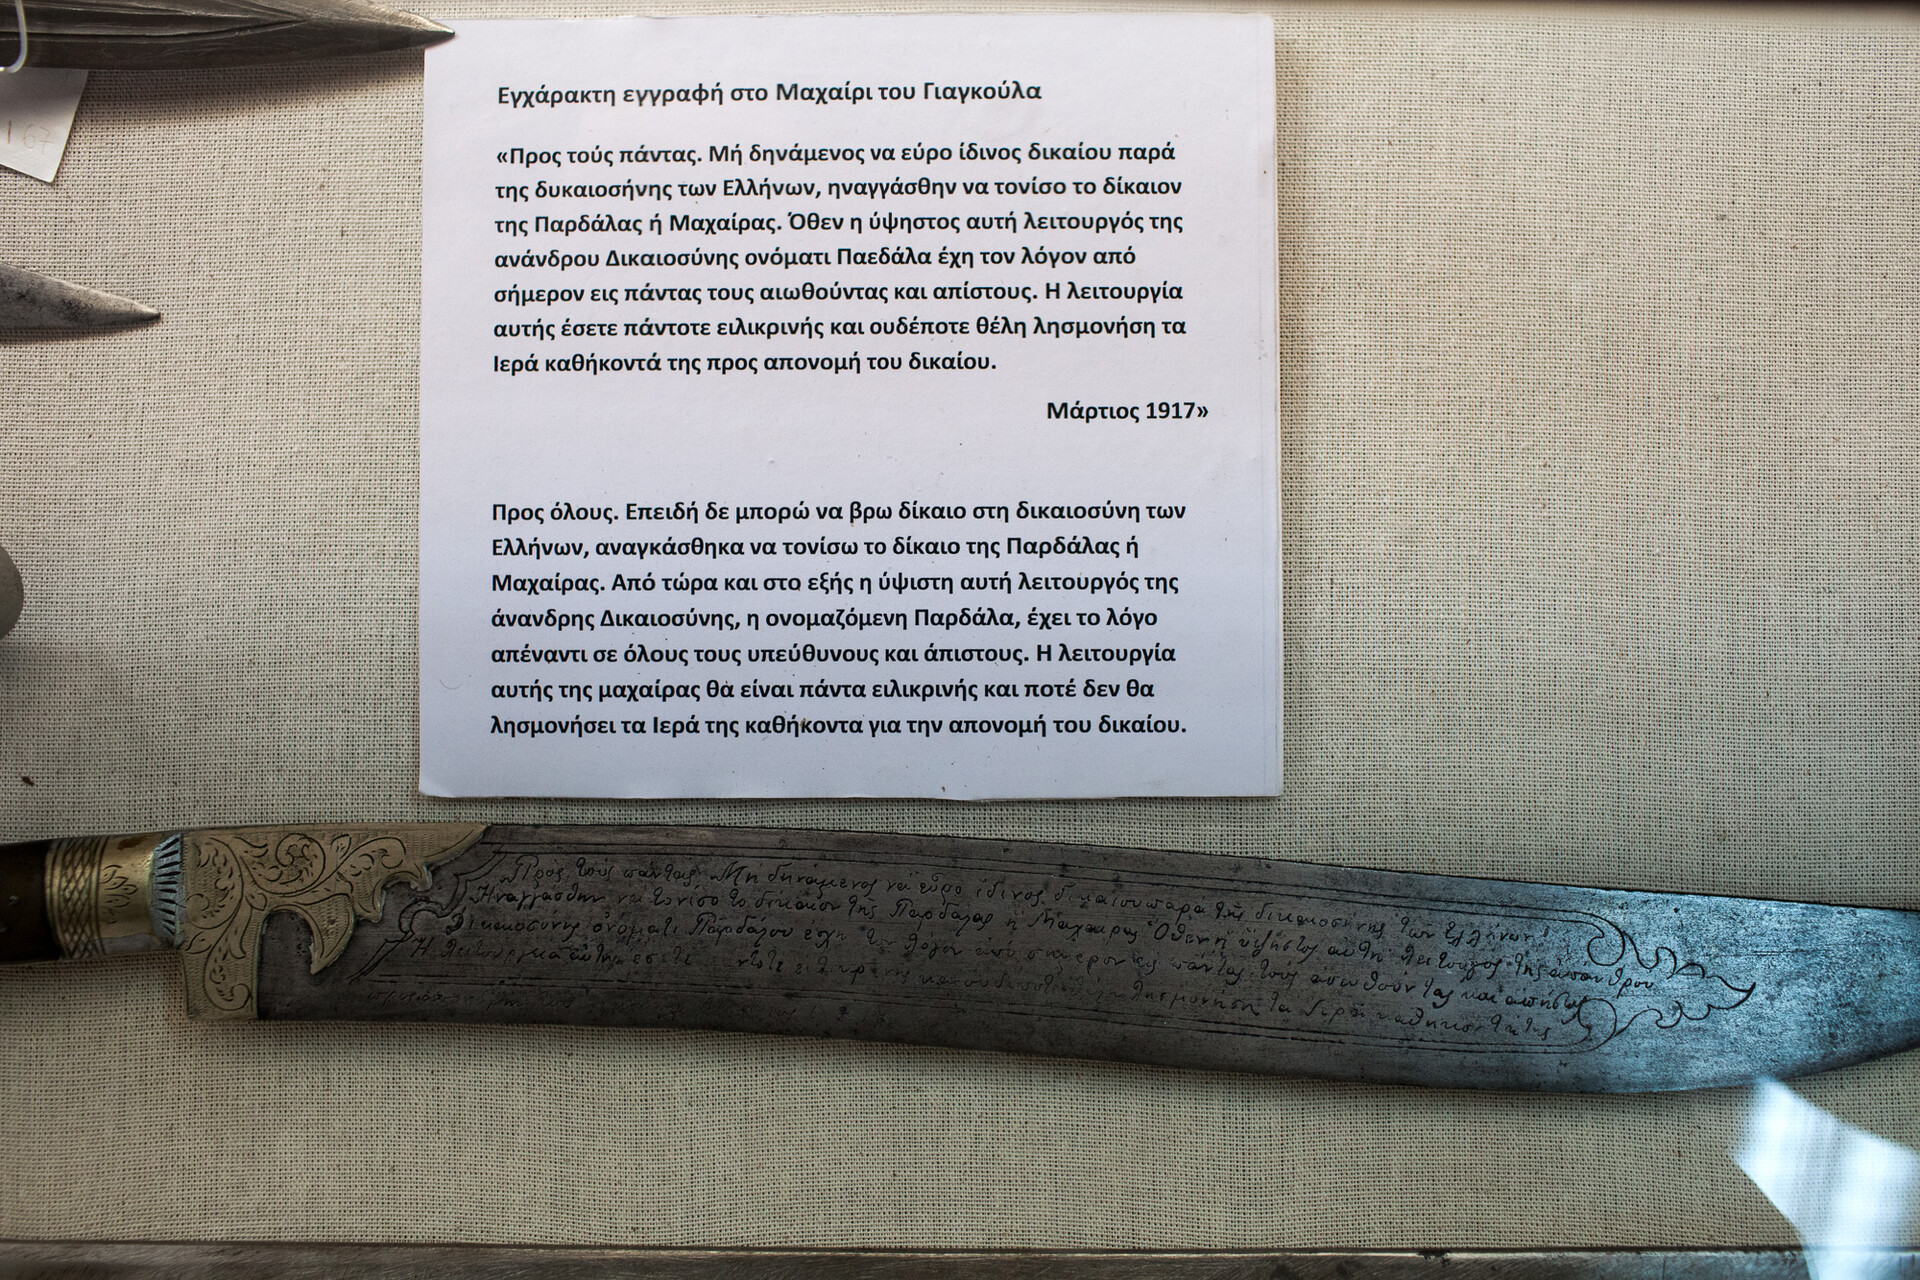 167
Εγχάρακτη εγγραφή στο Μαχαίρι του Γιαγκούλα
«Προς τούς πάντας. Μή δηνάμενος να εύρο ίδινος δικαίου παρά
της δυκαιοσήνης των Ελλήνων, ηναγγάσθην να τονίσο το δίκαιον
της Παρδάλας ή Μαχαίρας. Όθεν η ύψηστος αυτή λειτουργός της
ανάνδρου Δικαιοσύνης ονόματι Παεδάλα έχη τον λόγον από
σήμερον εις πάντας τους αιωθούντας και απίστους. Η λειτουργία
αυτής έσετε πάντοτε ειλικρινής και ουδέποτε θέλη λησμονήση τα
Ιερά καθήκοντά της προς απονομή του δικαίου.
Μάρτιος 1917»
Προς όλους. Επειδή δε μπορώ να βρω δίκαιο στη δικαιοσύνη των
Ελλήνων, αναγκάσθηκα να τονίσω το δίκαιο της Παρδάλας ή
Μαχαίρας. Από τώρα και στο εξής η ύψιστη αυτή λειτουργός της
άνανδρης Δικαιοσύνης, η ονομαζόμενη Παρδάλα, έχει το λόγο
απέναντι σε όλους τους υπεύθυνους και άπιστους. Η λειτουργία
αυτής της μαχαίρας θα είναι πάντα ειλικρινής και ποτέ δεν θα
λησμονήσει τα Ιερά της καθήκοντα για την απονομή του δικαίου.
Πρός τούς πάντας. Μη δηνάμενος να εύρο ίδινος δικαίου παρά της δικαιοσήνης των Ελλήνων
Ηναγγάσθην να τονίσο το δίκαιον της Παρδάλας ή Μαχαίρας Όθεν η ύψηστος αυτή λειτουργός της ανάνδρου
Δικαιοσύνης ονόματι Παρδάλου έχη τον λόγον από σήμερον εις πάντας τους και απήστους
Η λειτουργία αυτής έσετε ειλικρηνής και ουδέποτε θέλη λησμονήση τα Ιερά καθήκοντά της